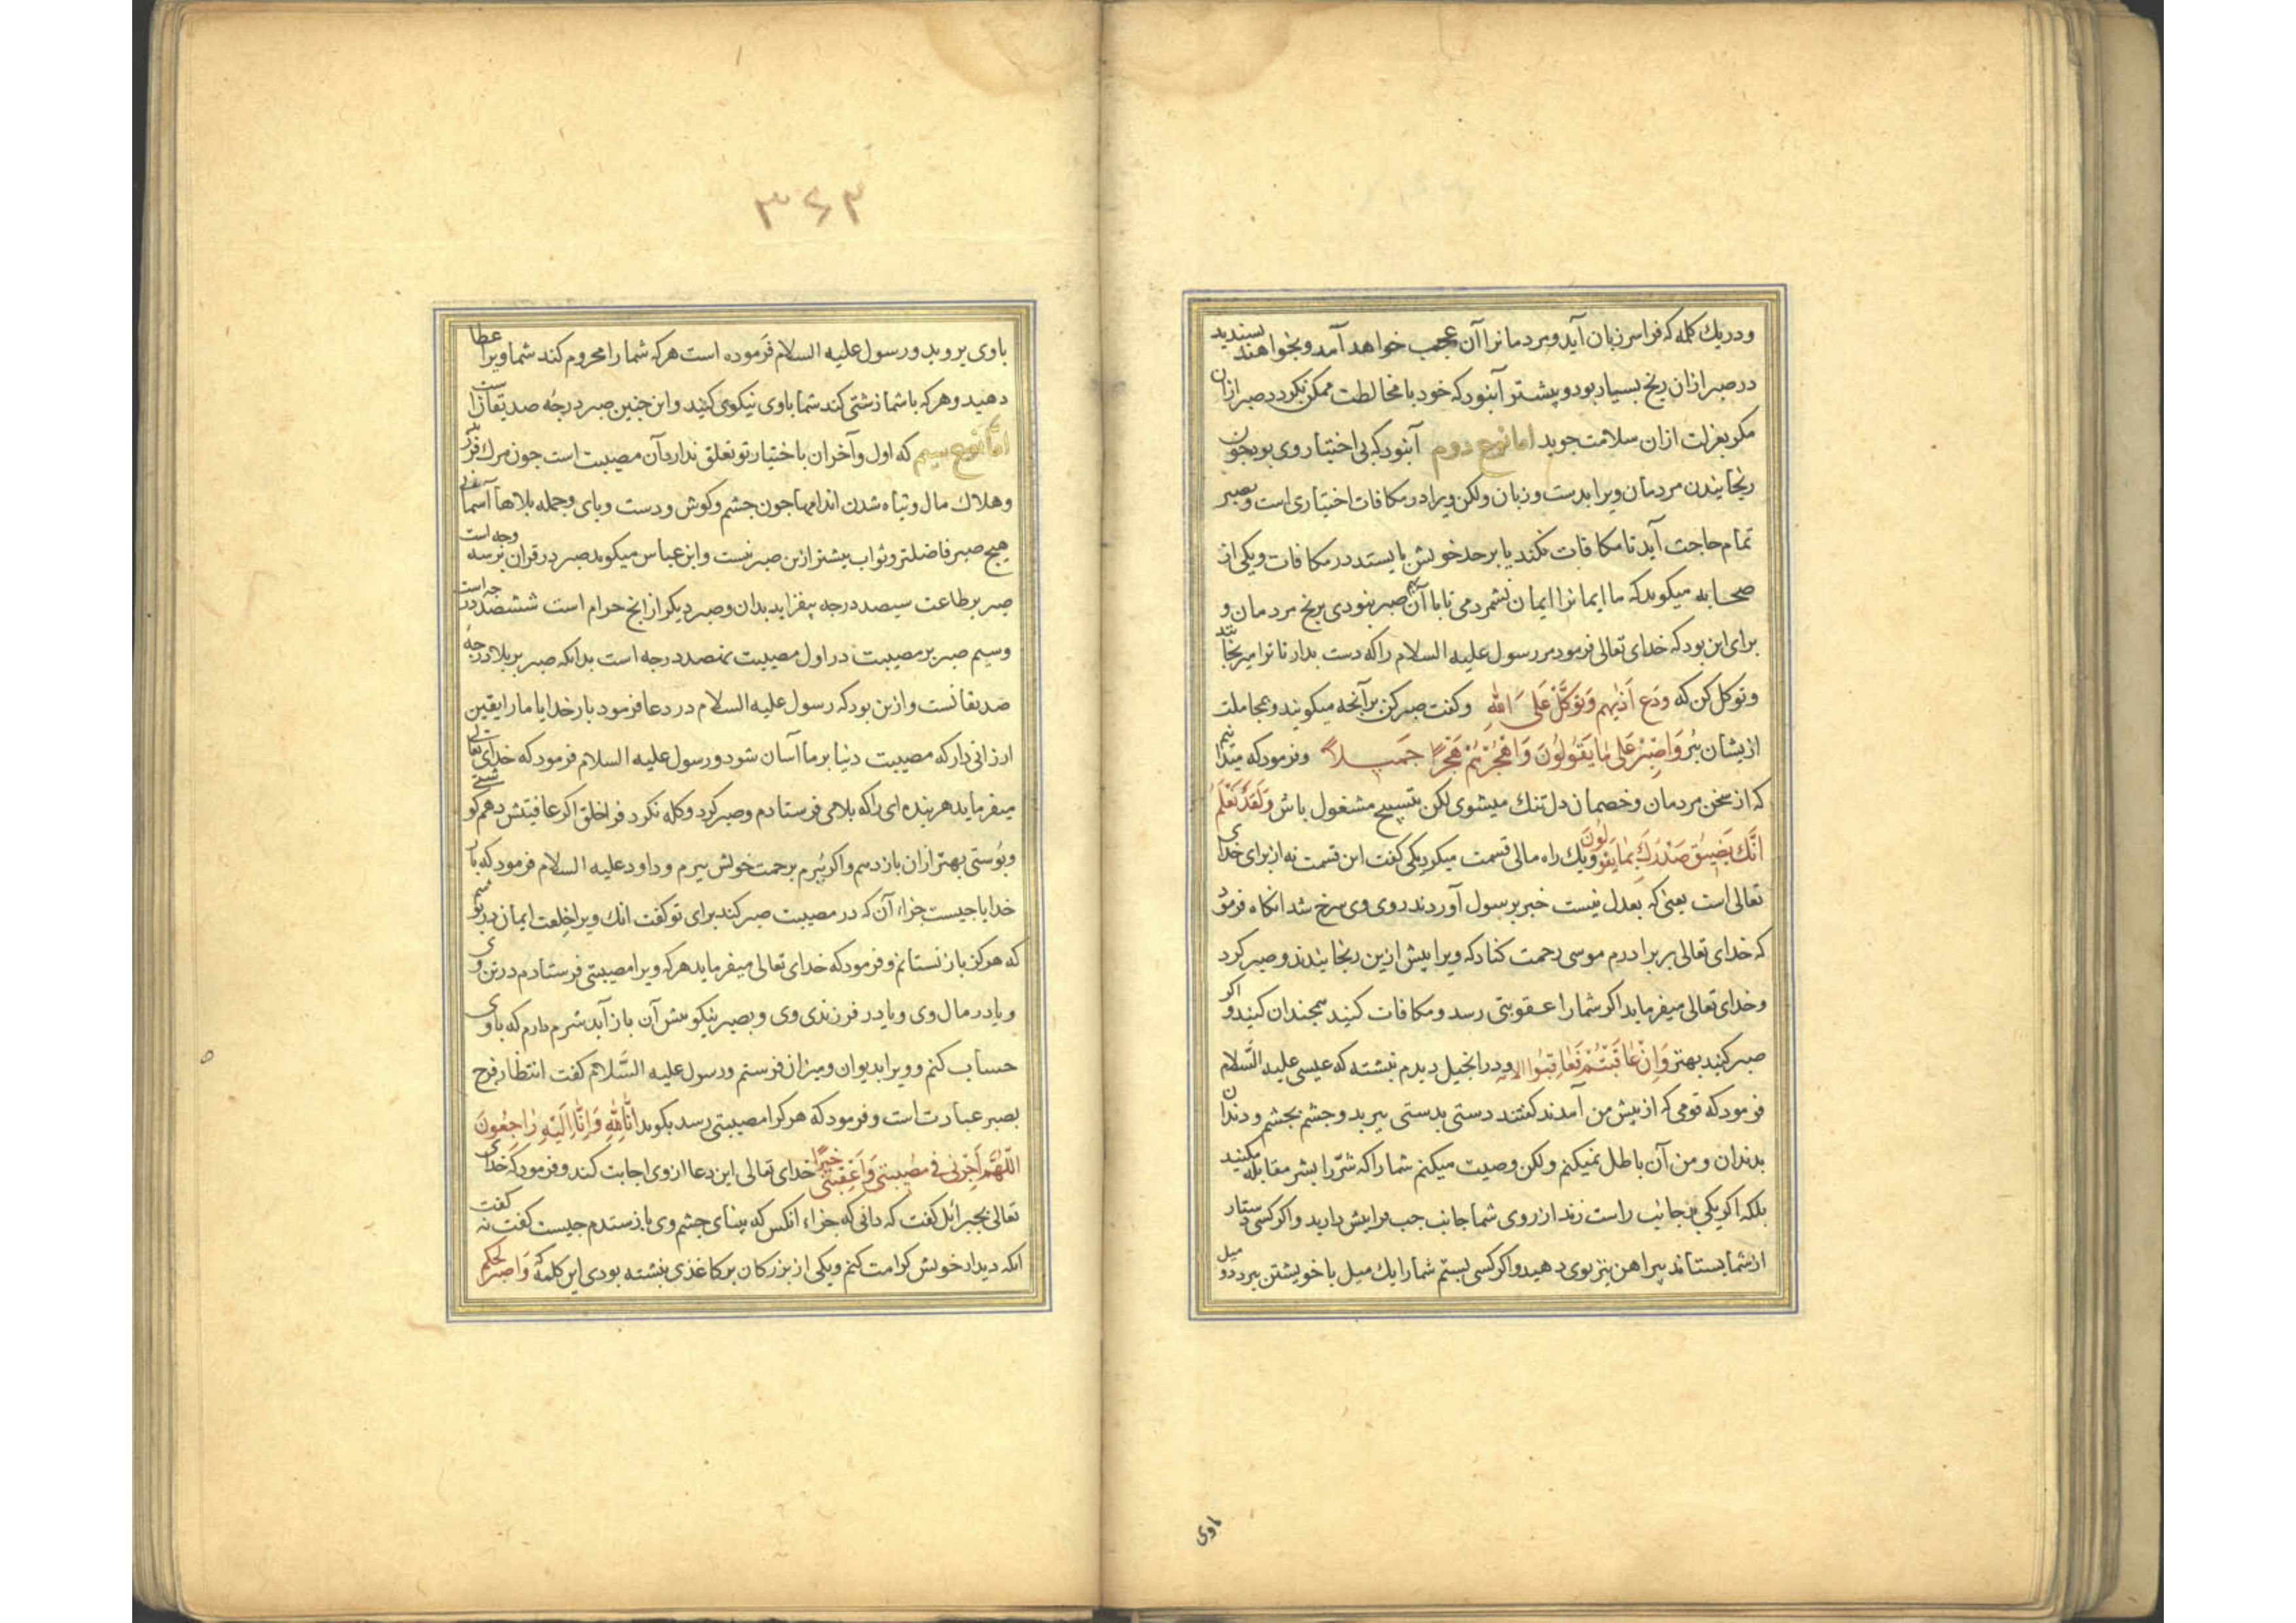 ودریك كلمه كه فراسر زبان آید ومردمانرا آن عجب خواهد آمد وبخواهند پسندید
درصبر ازان رنج بسیار بود وبیشتر آنبود كه خود با مخالطت ممكن نكردد صبر ازان
مكر بعزلت ازان سلامت جوید امانوع دوم آنبود كه بی اختیار وی بود چون
رنجانیدن مردمان ویرا بدست وزبان ولكن ویرا در مكافات اختیاری است وبصبر
تمام حاجت آید تا مكافات نكند یا برحد خویش بایستد در مكافات ویكی از
صحابه میكوید كه ما ایمانرا ایمان نشمردمی تا باآن بهم صبر نبودی برنج مردمان و
برای این بود كه خدای تعالی فرمود مر رسول علیه السلام را كه دست بدار تا ترا میرنجانند
وتوكل كن كه وَدَع اَذٰیهم وَتَوَكَّلْ عَلَی اللّٰهِ وكفت صبر كن برآنچه میكویند وبمجاملت
ازیشان ببُر وَاصْبِرْ عَلٰی مٰا یَقُولُونَ وَاهْجُرْهُمْ هَجْرًا جَمیلاً وفرمود كه میدانیم
كه از سخن مردمان وخصمان دل تنك میشوی لكن بتسبیح مشغول باش وَلَقَدْ نَعْلَمُ
اَنَّكَ یَضیقُ صَدْرُكَ بِمٰا یَقُولُونَ ویك راه مالی قسمت میكرد یكی كفت این قسمت نه از برای خدای
تعالی است یعنی كه بعدل نیست خبر برسول آوردند روی وی سرخ شد انكاه فرمود
كه خدای تعالی بر برادرم موسی رحمت كناد كه ویرا بیش ازین رنجانیدند وصبر كرد
وخدای تعالی میفرماید اكر شما را عقوبتی رسد ومكافات كنید همچندان كنید واكر
صبر كنید بهتر وَاِنْ عٰاقَبْتُمْ فَعٰاقِبُوا الایه ودر انجیل دیدم نبشته كه عیسی علیه السَّلام
فرمود كه قومی كه از پیش من آمدند كفتند دستی بدستی ببرید وچشم بچشم ودندان
بدندان ومن آن باطل نمیكنم ولكن وصیت میكنم شما را كه شرّ را بشر مقابله مكنید
بلكه اكر یكی بر جانب راست زند از روی شما جانب چپ فرا پیش دارید واكر كسی دستار
از شما بستاند پیراهن نیز بوی دهید واكر كسی بستم شما را یك میل با خویشتن ببرد دو میل
باوی
۳۶۳
باوی بروید ورسول علیه السلام فرموده است هركه شما را محروم كند شما ویرا عطا
دهید وهركه باشما زشتی كند شما باوی نیكوی كنید واین چنین صبر درجه صدیقانست
امّا نوع سیم كه اول وآخر ان باختیار تو تعلق ندارد آن مصیبت است چون مرك فرزند
وهلاك مال وتباه شدن اندامها چون چشم وكوش ودست وپای وجمله بلاهاء آسمانی
هیچ صبر فاضلتر وثواب بیشتر ازین صبر نیست وابن عباس میكوید صبر در قران بر سه وجه است
صبر بر طاعت سیصد درجه بیفزاید بدان وصبر دیكر از انچ حرام است ششصد درجه است
وسیم صبر بر مصیبت در اول مصیبت نهصد درجه است بدانكه صبر بر بلا درجهٔ
صدیقانست وازین بود كه رسول علیه السلام در دعا فرمود بار خدایا ما را یقین
ارزانی دار كه مصیبت دنیا برما آسان شود ورسول علیه السلام فرمود كه خدای تعالی
میفرماید هر بنده ای را كه بلائی فرستادم وصبر كرد وكله نكرد فرا خلق اكر عافیتش دهم كوشتی
وپوستی بهتر ازان بازدهم واكر ببُرم برحمت خویش برم وداود علیه السلام فرمود كه بار
خدایا چیست جزاء آن كه در مصیبت صبر كند برای تو كفت انك ویرا خلعت ایمان درپوشم
كه هركز باز نستانم وفرمود كه خدای تعالی میفرماید هركه ویرا مصیبتی فرستادم در تن وی
ویا در مال وی ویا در فرزندی وی وبصبر نیكو پیش آن باز آید شرم دارم كه باوی
حساب كنم وویرا بدیوان ومیزان فرستم ورسول علیه السَّلام كفت انتظار فرج
بصبر عبادت است وفرمود كه هر كرا مصیبتی رسد بكوید اِنّٰا لِلّٰهِ وَاِنّٰا اِلَیْهِ رٰاجِعُونَ
اَللّٰهُمَّ اَجِرْنی فی مصیبتی وَاَعْقِبْنی خَیْرًا خدای تعالی این دعا از وی اجابت كند وفرمود كه خدای
تعالی بجبرائیل كفت كه دانی كه جزاء انكس كه بینای چشم وی بازستدم چیست كفت نه كفت
انكه دیدار خویش كرامت كنم ویكی از بزركان بر كاغذی نبشته بودی این كلمه وَاصْبِرْ لِحُكْمِ